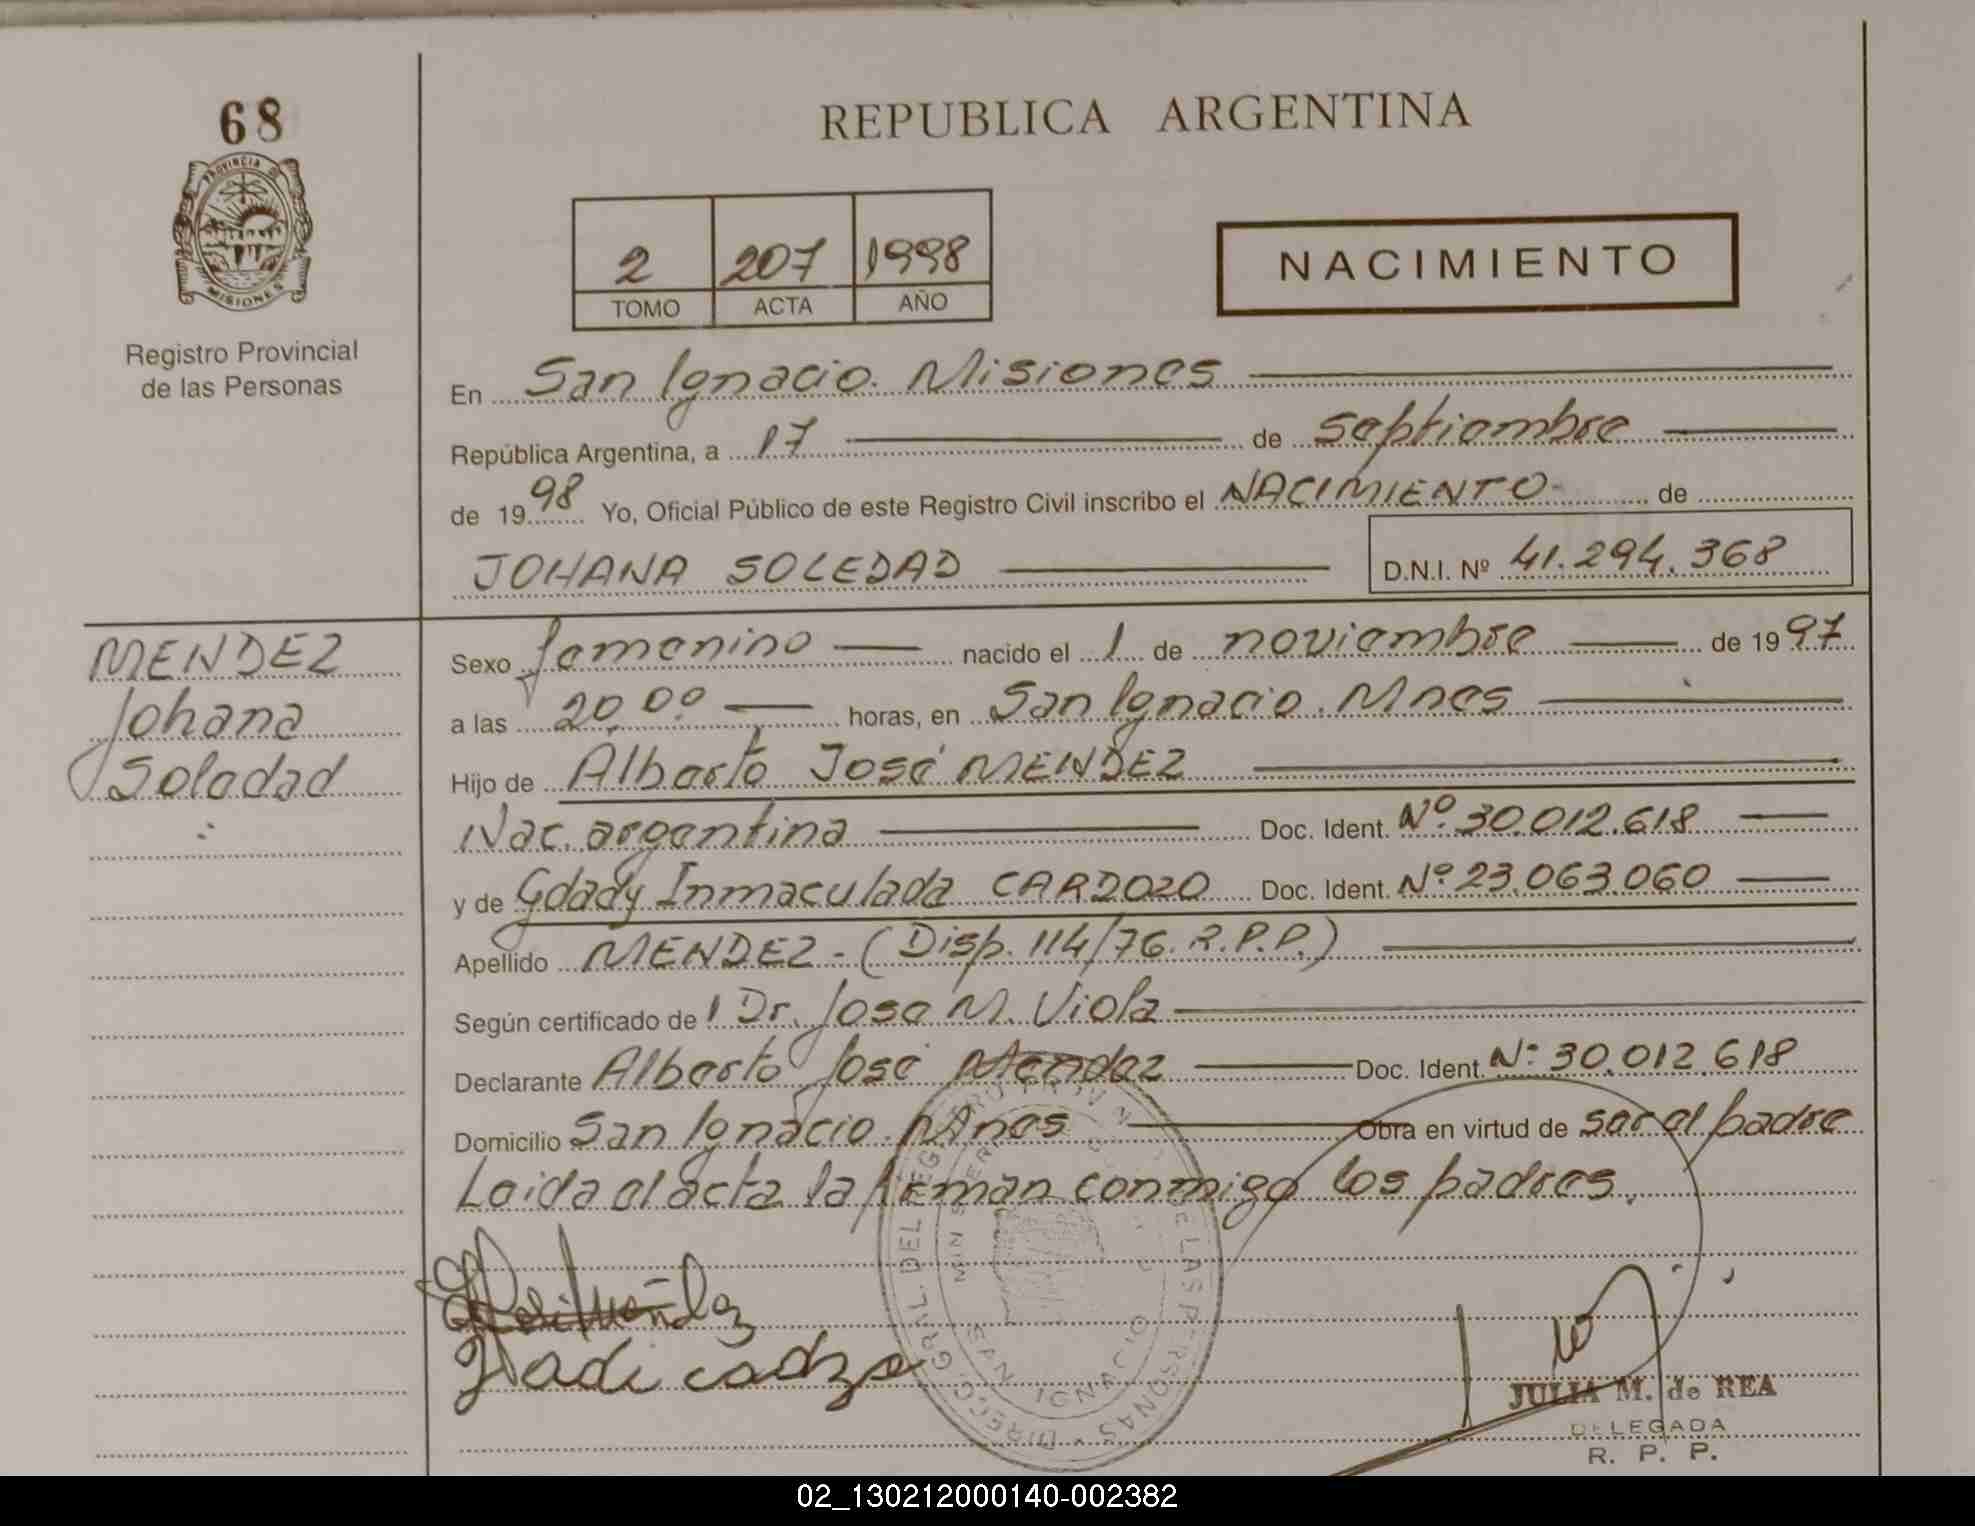 68
PROVINCIA DE
MISIONES
Registro Provincial
de las Personas
REPUBLICA ARGENTINA
2 207 1998
TOMO ACTA AÑO
NACIMIENTO
En San Ignacio. Misiones
República Argentina, a 17 de septiembre
de 1998 Yo, Oficial Público de este Registro Civil inscribo el NACIMIENTO- de
JOHANA SOLEDAD D.N.I. Nº 41.294.368
MENDEZ
Johana
Soledad
Sexo femenino nacido el 1 de noviembre de 1997
a las 20,00 horas, en San Ignacio. Mnes
Hijo de Alberto José MENDEZ
Nac. argentina Doc. Ident. Nº 30.012.618
y de Gdady Inmaculada CARDOZO Doc. Ident. Nº 23.063.060
Apellido MENDEZ - (Disp. 114/76. R.P.P.)
Según certificado de l Dr. Jose M. Viola
Declarante Alberto José Mendez Doc. Ident. Nº 30.012.618
Domicilio San Ignacio. Mnes Obra en virtud de ser el padre
Leida el acta la firman conmigo los padres.
DIRECC. GRAL. DEL REGISTRO PROV. DE LAS PERSONAS
SAN IGNACIO
JULIA M. de REA
DELEGADA
R. P. P.
02_130212000140-002382